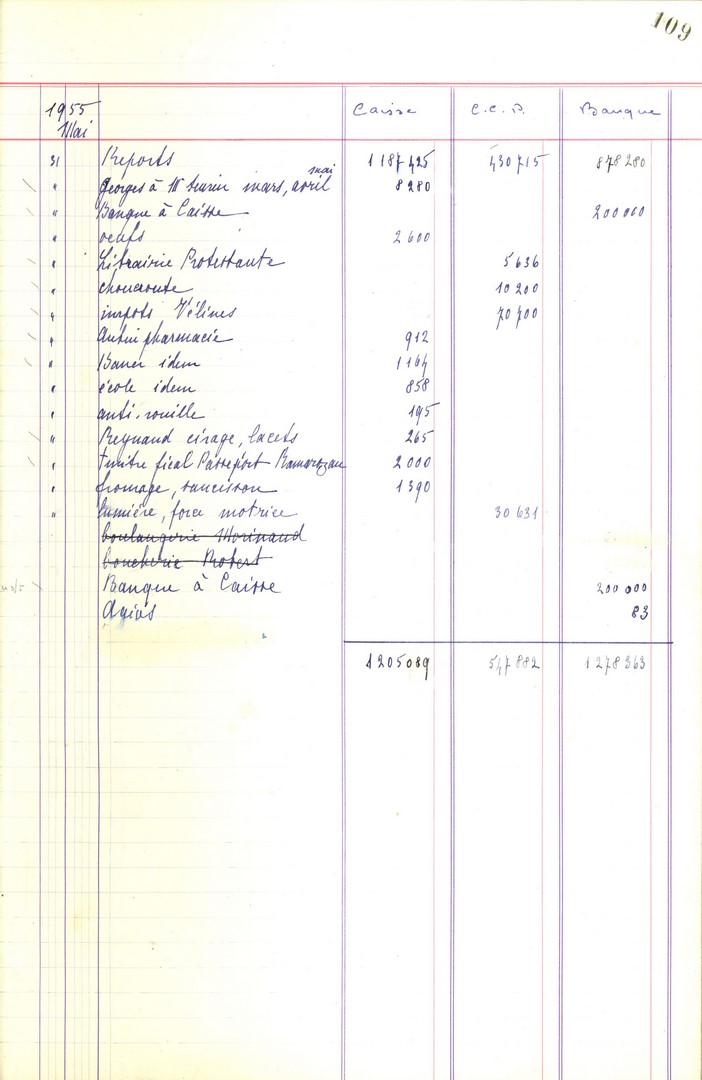 109
1955 Caisse C.C.P. Banque
Mai
31 Reports 1187425 430715 878280
mai
" Georges à mars, avril 8280
" Banque à Caisse 200000
" oeufs 2600
" Librairie Protestante 5636
" choucroute 10200
" impots Vélines 70700
" pharmacie 912
" idem 1164
" école idem 858
" anti-rouille 195
" Reynaud cirage, lacets 265
" timbre fical Passeport 2000
" fromage, saucisson 1390
" lumière, force motrice 30631
boulangerie Morinaud
boucherie Robert
Banque à Caisse 200000
Agios 83
1205089 547882 1278363